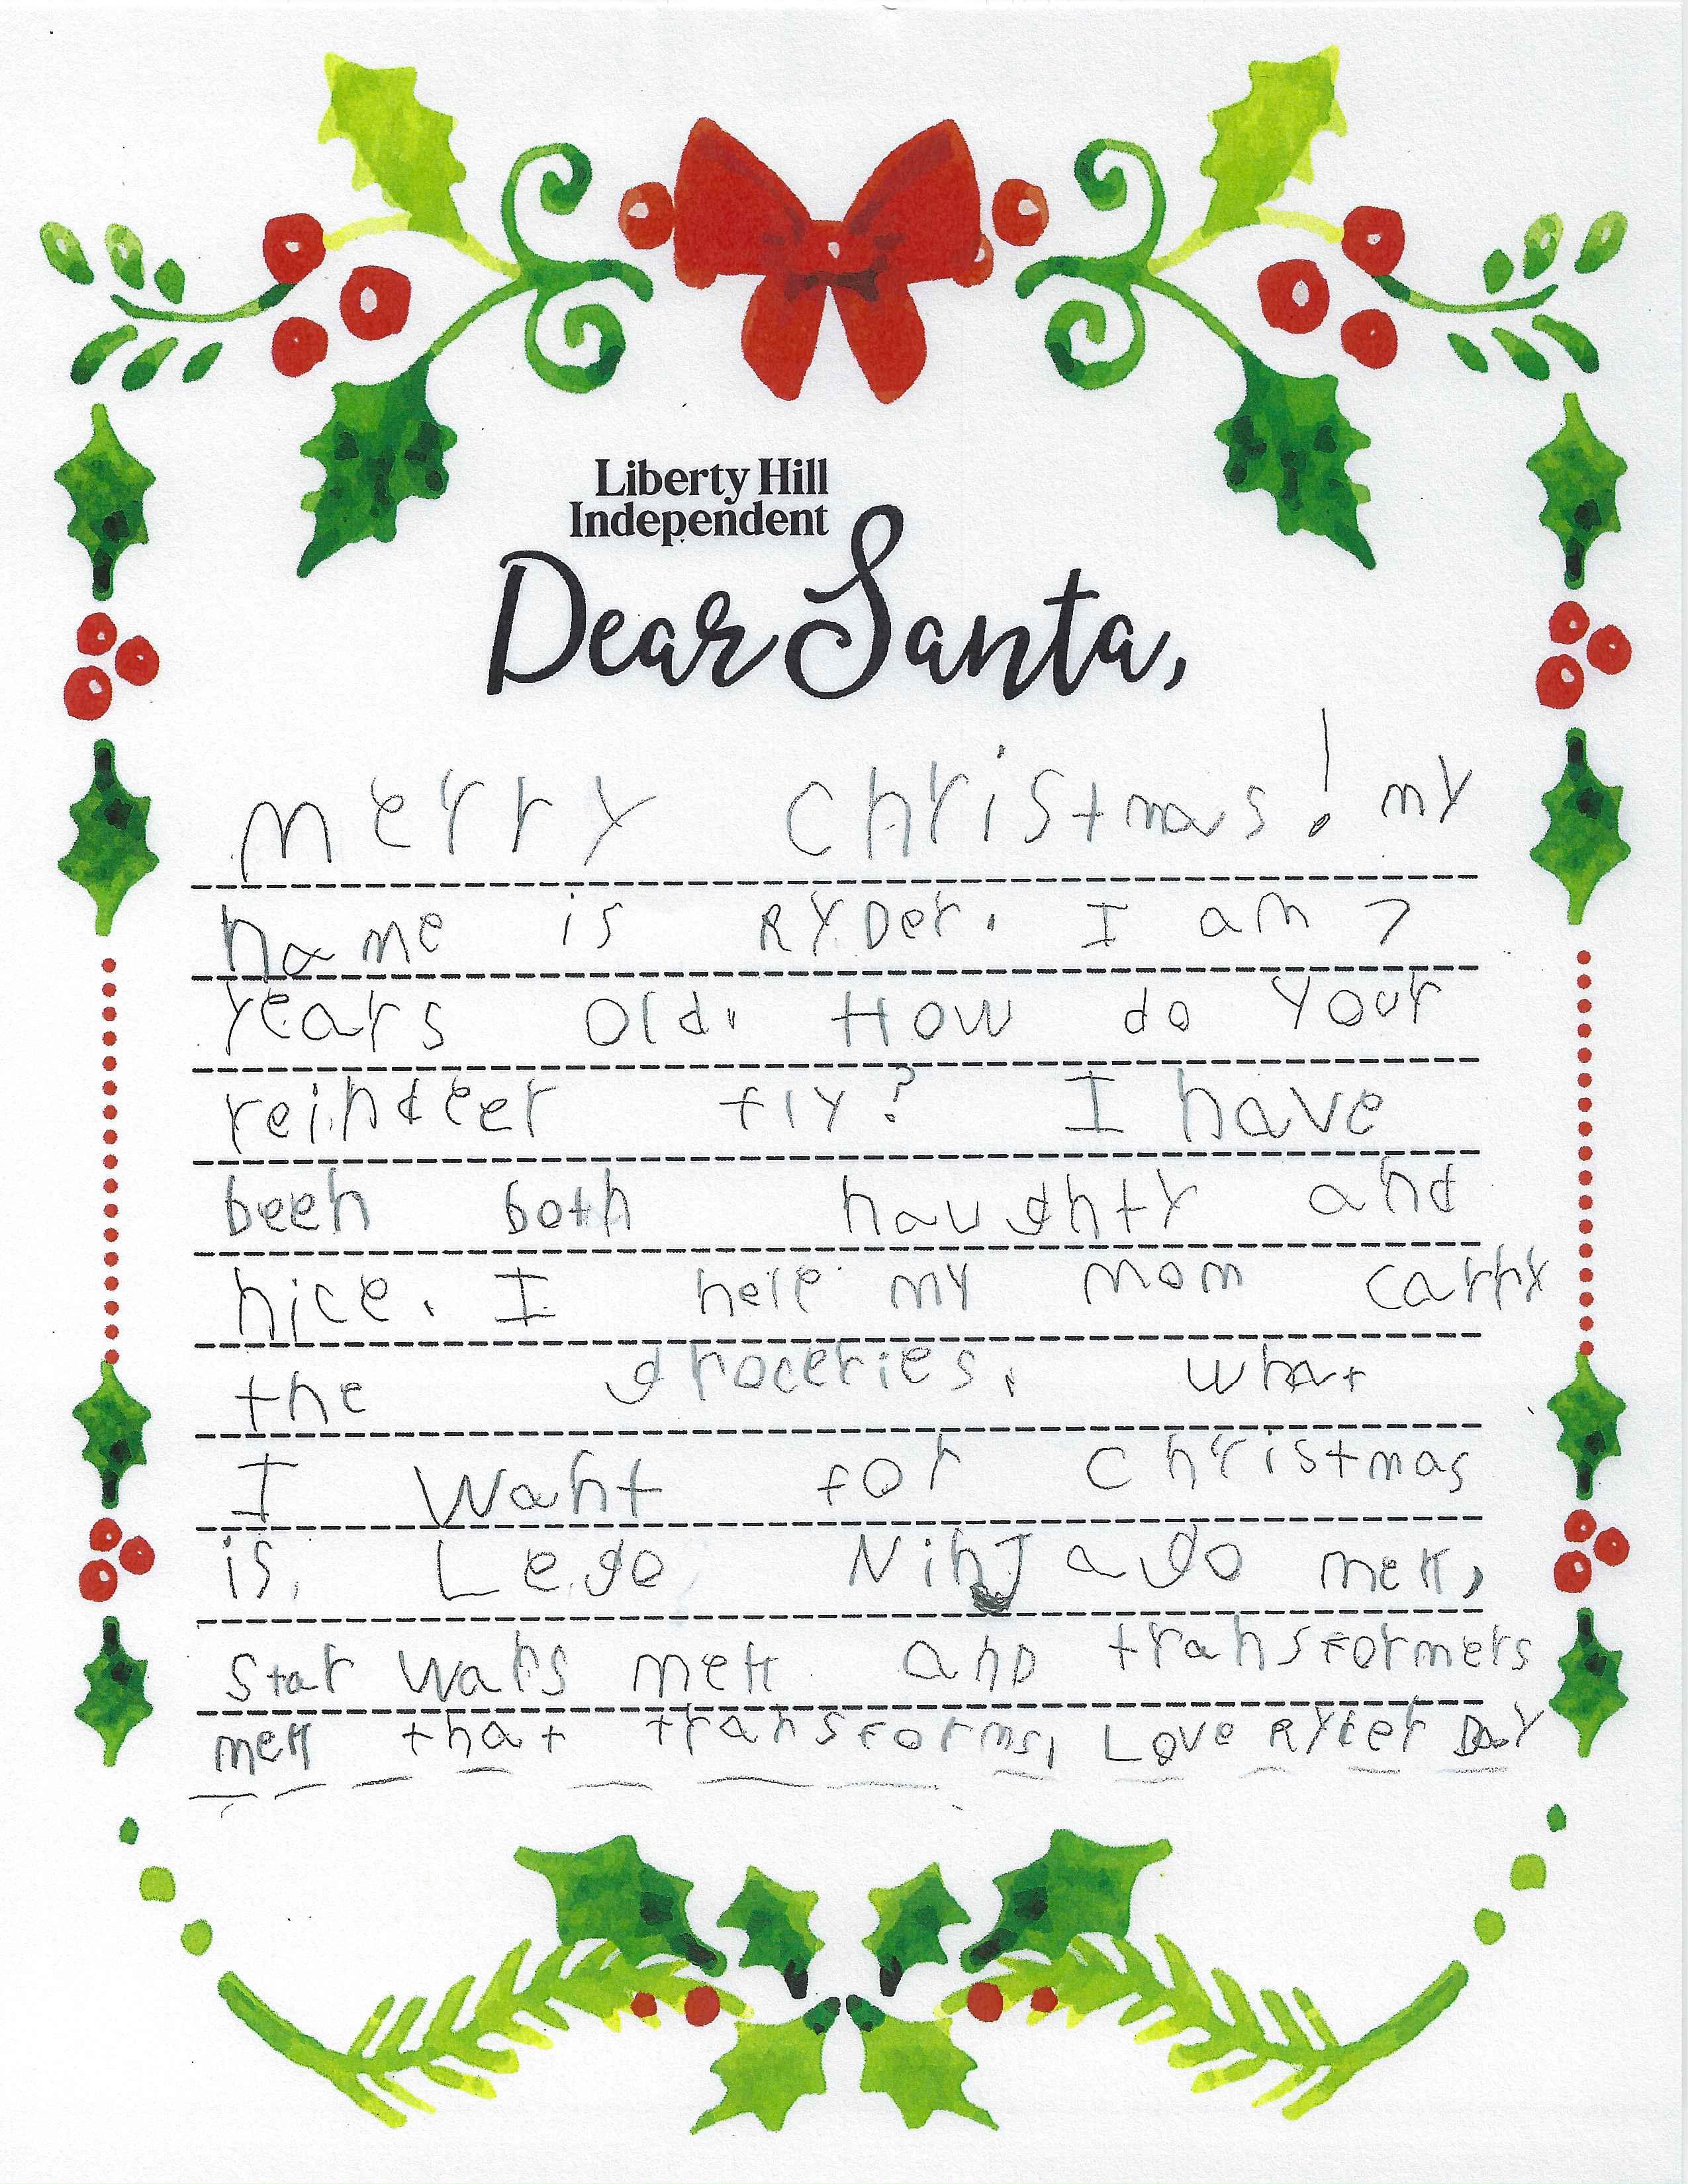 Liberty Hill
Independent
Dear Santa,
merry Christmas! my
name is RYDer. I am 7
years old. How do your
reindeer fly? I have
been both naughty and
nice. I help my mom carry
the groceries. what
I want for Christmas
is. Lego NinJago men,
star wars men anD transformers
men that transforms, Love RYder DaY